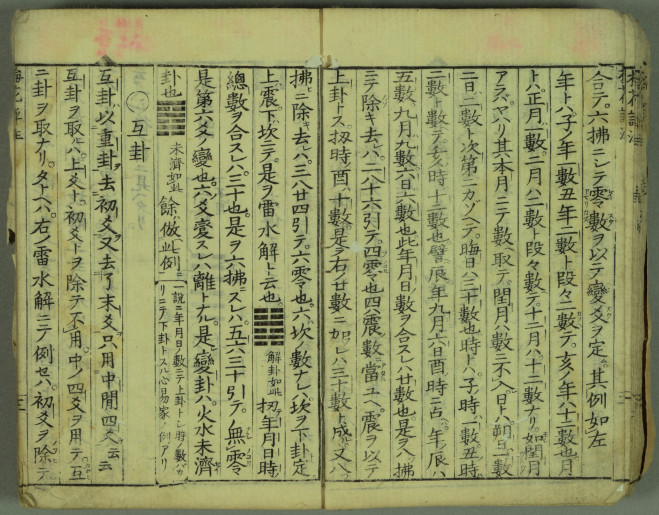 合テ。六拂ニシテ零數ヲ以テ變爻ヲ定。其例如左
年トハ子ノ年一數丑年二數ト段々ニ數テ。亥ノ年ハ十二數也月
トハ。正月一數二月ハ二數ト段々數テ。十二月ハ十二數ナリ。如閏月
アラズヤハリ其本月ニテ數取テ閏月ハ數ニ不入日トハ朔日一數
二日ニ數ト次第ニカゾヘテ。晦日ハ三十數也時トハ。子ノ時一數丑時
二數ト數テ。亥ノ時十二數也譬ハ辰年九月六日酉時占ハ年辰ハ
五數九月九數六日六數也此年月日ノ數ヲ合スレハ廿數也。是ヲ八拂
三テ除キ去レハ。二八十六引テ。四零也四ハ震ノ數ニ當ユヘ。震ヲ以テ
上卦トス扨時酉ハ十數。是ヲ右ノ廿數ニ加レハ三十數ト成又八ハ
拂ニ除去レハ。三八廿四引テ。六零也。六ハ坎ノ數ナレハ坎ヲ下卦定
上震下坎ニテ。是ヲ雷水解ト云也 解卦如此 扨年月日時
總數ヲ合スレハ三十也。是ヲ六拂スレハ。五六三十引テ。無零
是第六爻ノ變也。六爻變スレハ離トナル。是ノ變卦ハ。火水未濟
卦也 未濟如此 餘ハ倣此例ニ 一說ニ年月日ノ數ニテ上卦トシ時ノ數バカ
リニテ下卦トスル心易家ノ例アリ
○互卦
互卦以重卦去初爻又去了末爻只用中間四爻云云
互卦ヲ取ルハ。上爻ト初爻トヲ除テ不用。中ノ四爻ヲ用テ互
ニ卦ヲ取ナリ。タトヘハ。右ノ雷水解ニテ例セハ。初爻ヲ除テ